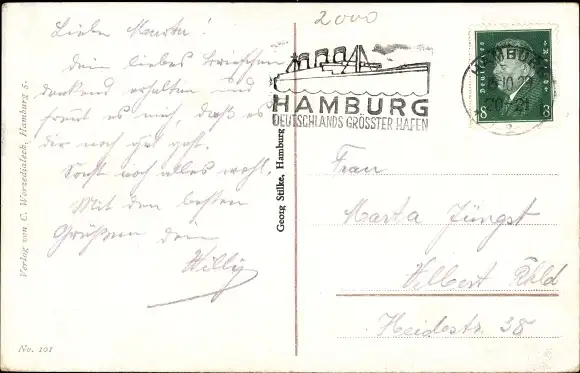 2000
Liebe Marta!
Dein liebes Briefchen
dankend erhalten und
freut es mich, daß es
dir noch gut geht.
Sonst noch alles wohl.
Mit den besten
Grüßen dein
Willy
Verlag von C. Worzedialeck, Hamburg 5.
No. 101
Georg Stilke, Hamburg
HAMBURG
DEUTSCHLANDS GRÖSSTER HAFEN
HAMBURG
Deutsches Reich
8 8
Frau
Marta Jüngst
Velbert Rhld
Heidestr. 38